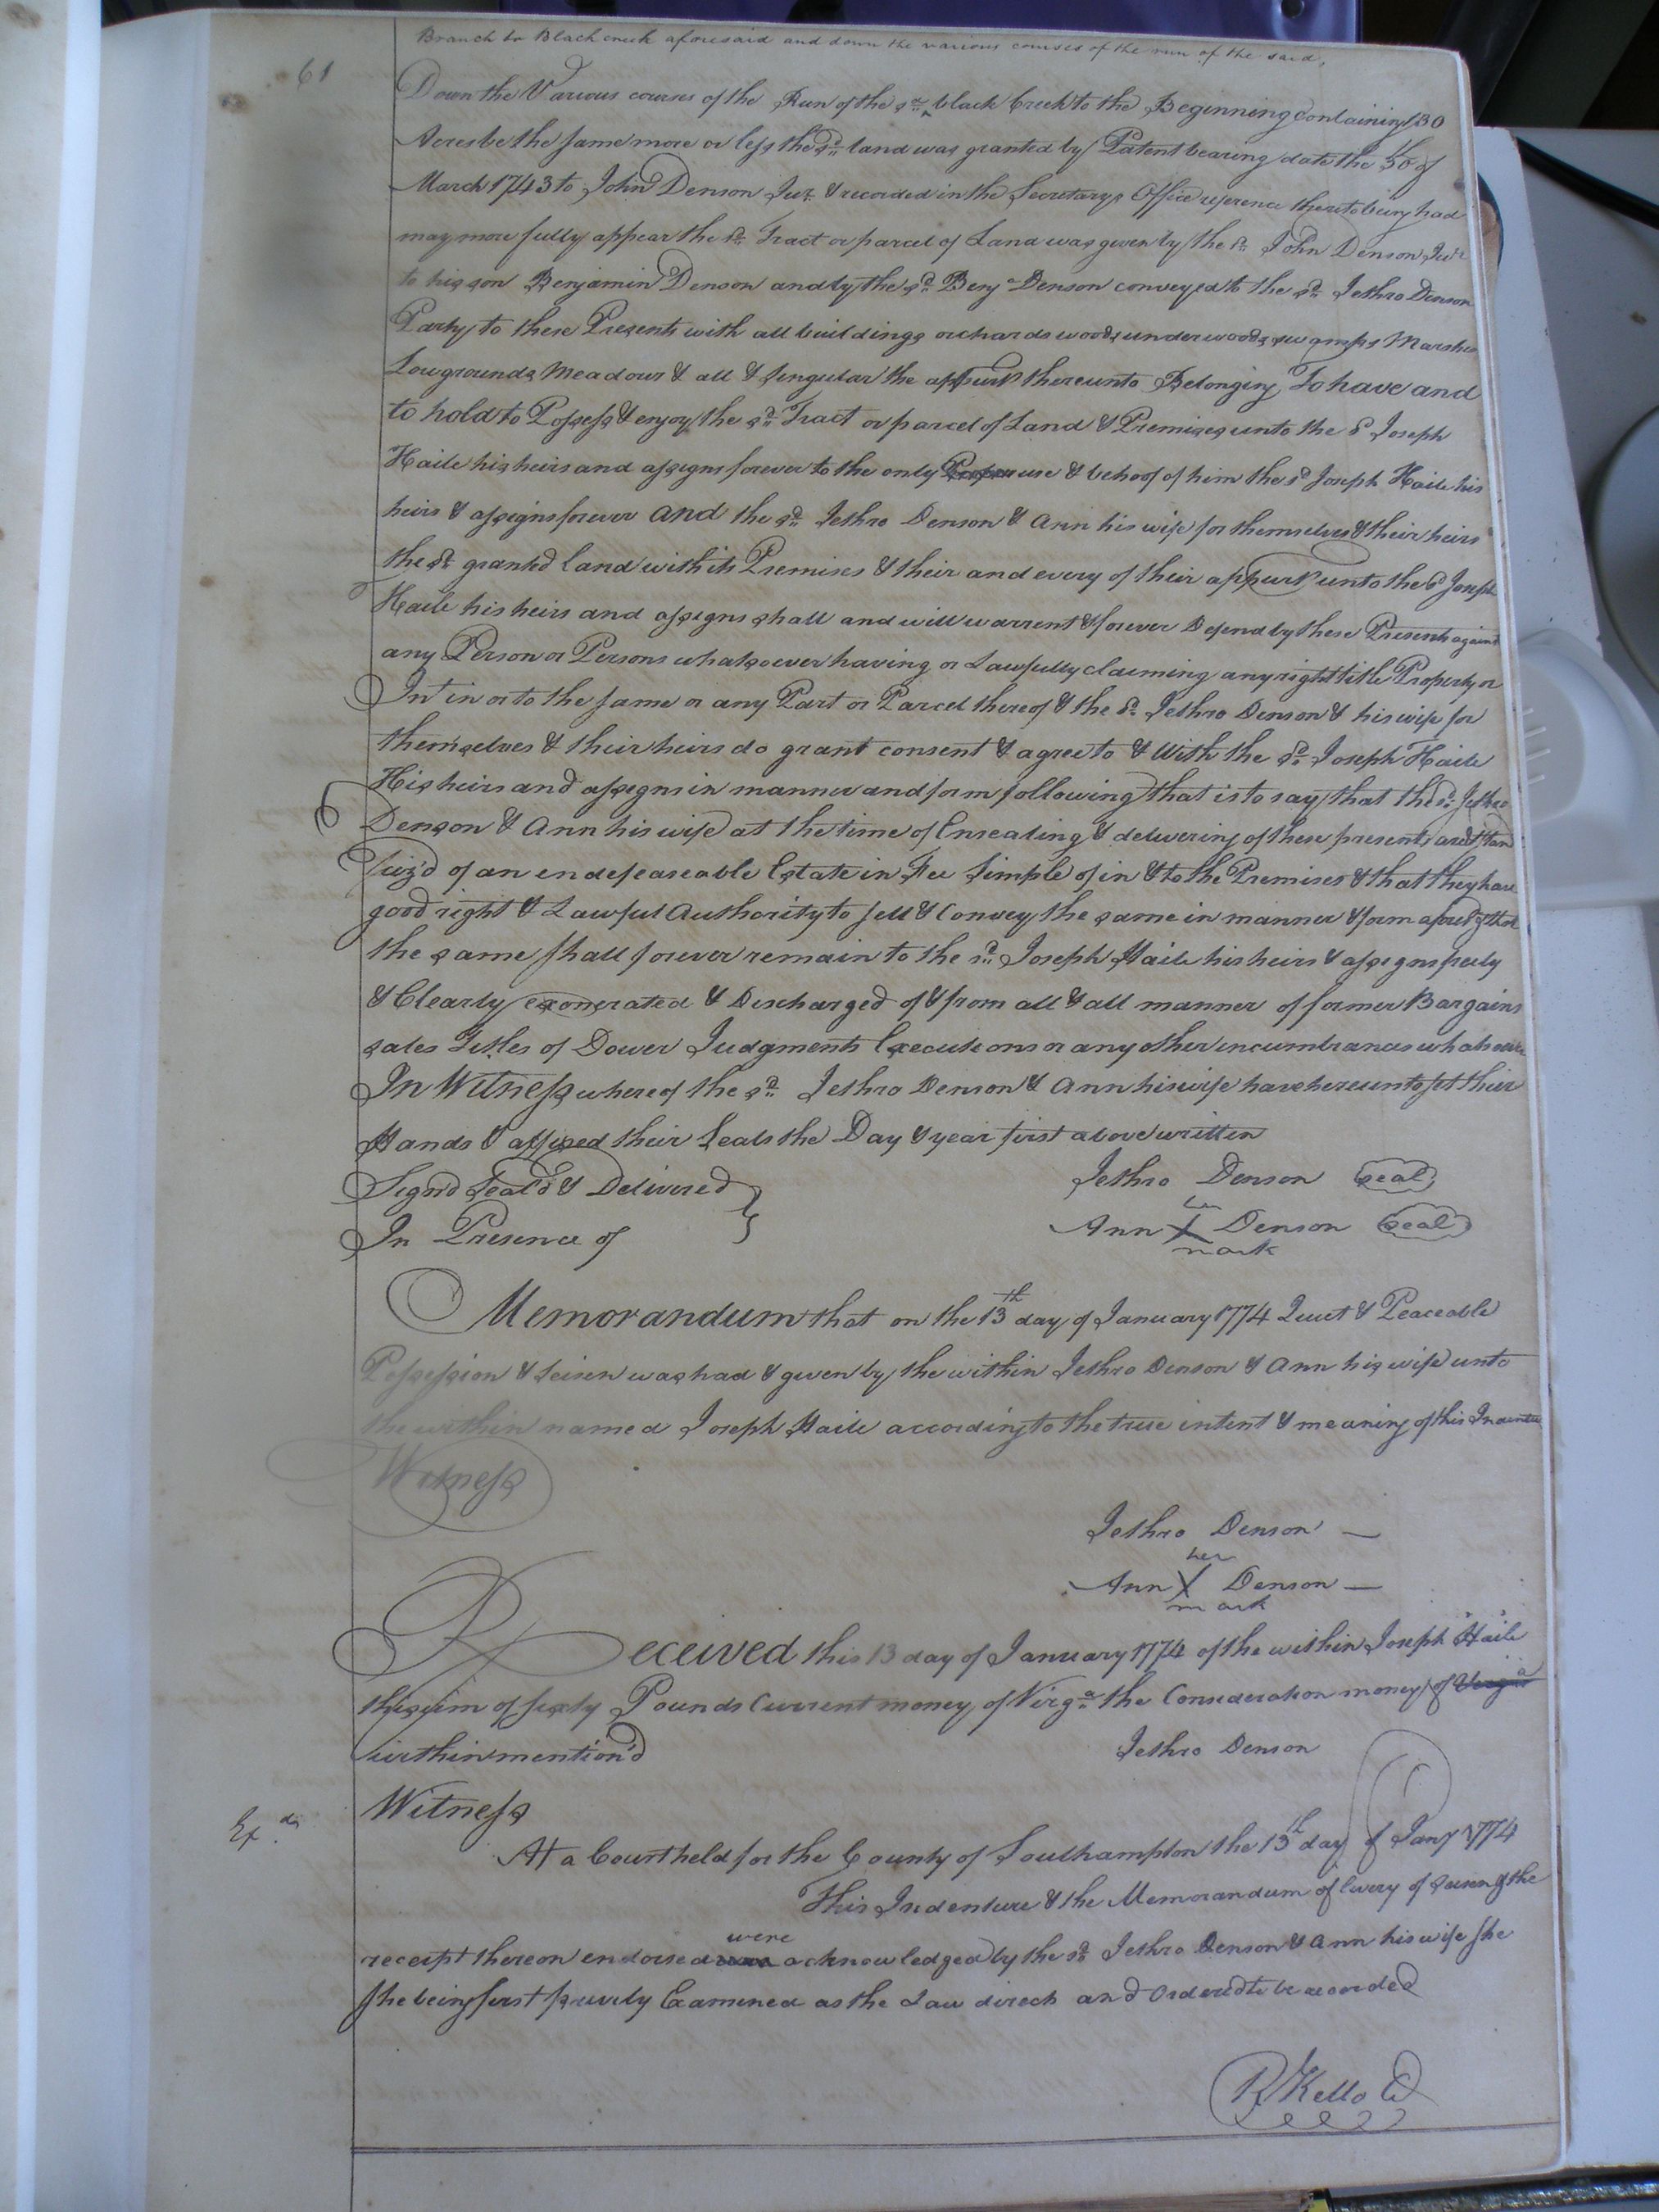 Branch to Black creek aforesaid and down the various courses of the run of the said,
61
Down the Various courses of the Run of the sd. ‸ black Creek to the Beginning Containing 130
Acres be the same more or less the sd. land was granted by Patent bearing date the 30 of
March 1743 to John Denson Junr. & recorded in the Secretarys Office reference thereto being had
may more fully appear the sd. Tract or parcel of Land was given by the sd. John Denson Junr
to his son Benjamin Denson and by the sd. Benja Denson conveyed to the sd. Jethro Denson
Party to these Presents with all buildings orchards woods underwoods swamps Marshes
Lowgrounds Meadows & all & singular the appurts thereunto Belonging To have and
to hold to Possess & enjoy the sd. Tract or parcel of Land & Premises unto the sd Joseph
Haile his heirs and assigns forever to the only use & behoof of him the sd Joseph Haile his
heirs & assigns forever and the sd. Jethro Denson & Ann his wife for themselves & their heirs
the sd. granted land with its Premises & their and every of their appurts unto the sd Joseph
Haile his heirs and assigns shall and will warrent & forever Defend by these Presents against
any Person or Persons whatsoever having or Lawfully claiming any right title Property or
Int in or to the same or any Part or Parcel thereof & the sd. Jethro Denson & his wife for
themselves & their heirs do grant consent & agree to & With the sd. Joseph Haile
His heirs and assigns in manner and form following that is to say that the sd. Jethro
Denson & Ann his wife at the time of Ensealing & delivering of these presents are & stand
siez'd of an endefeaseable Estate in Fee Simple of in & to the Premises & that they have
good right & Lawful Authority to sell & Convey the same in manner & form aforesd & that
the same shall forever remain to the sd. Joseph Haile his heirs & assigns freely
& Clearly exonerated & Discharged of & from all & all manner of former Bargains
sales Titles of Dower Judgments Executions or any other incumbrances whatsoever
In Witness whereof the sd. Jethro Denson & Ann his wife have hereunto set their
Hands & affixed their Seals the Day & year first above written
Sign'd Seal'd & Delivered } Jethro Denson Seal
her
In Presence of Ann X Denson Seal
mark
Memorandum that on the 13th day of January 1774 Quiet & Peaceable
Possession & Seisen was had & given by the within Jethro Denson & Ann his wife unto
the within named Joseph Haile according to the true intent & meaning of this Indenture
Witness
Jethro Denson —
her
Ann X Denson —
mark
Received this 13 day of January 1774 of the within Joseph Haile
the sum of sixty Pounds Current money of Virga. the Consideration money of Virga
within mention'd Jethro Denson
Witness
Exd.
At a Court held for the County of Southampton the 13th day of Jany 1774
This Indenture & the Memorandum of livery of seisen & the
were
receipt thereon endorsed was acknowledged by the sd. Jethro Denson & Ann his wife she
she being first privily Examined as the Law directs and Ordered to be recorded
R Kello C